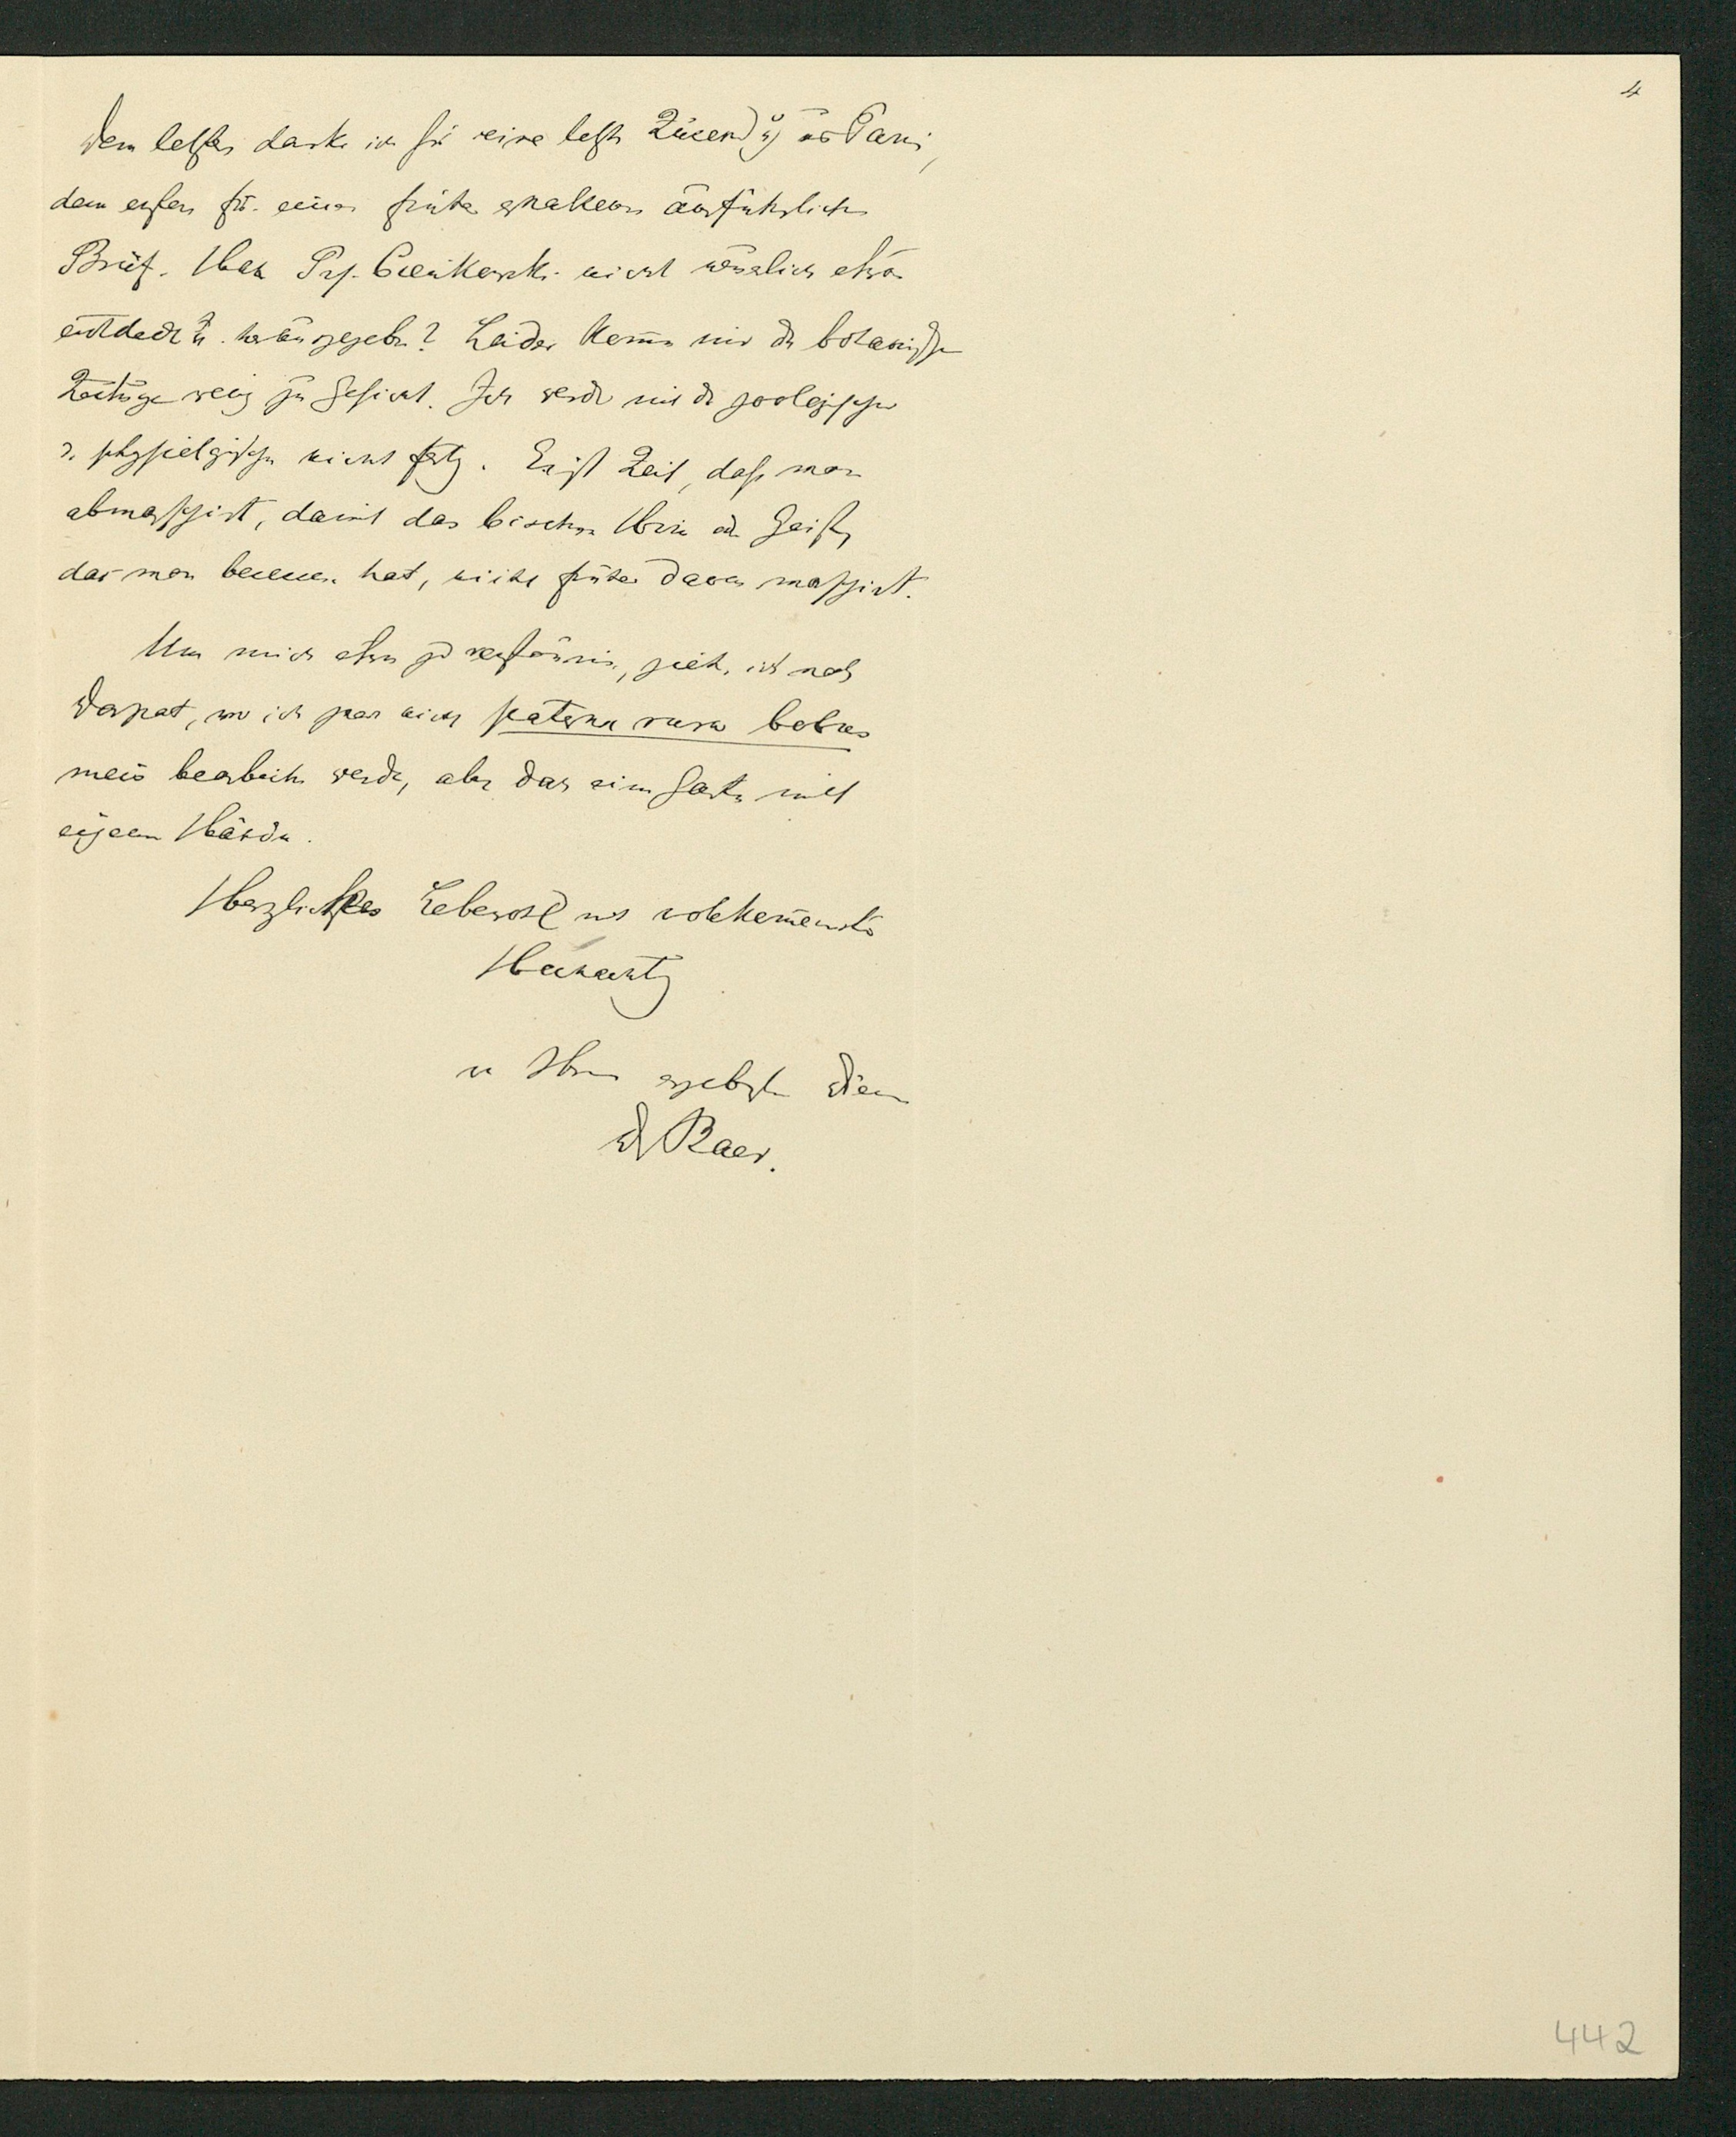 4
Dem letzten danke ich für seine letzte Zusendung aus Paris,
dem ersten für einen früher erhaltenen ausführlichen
Brief. Hat Prof. Cienkowski nicht neulich etwas
entdeckt u. herausgegeben? Leider kommen mir die botanischen
Zeitungen wenig zu Gesicht. Ich werde mit den zoologischen
u. physiologischen nicht fertig. Es ist Zeit, daß man
abmarschirt, damit das bischen Hirn oder Geist,
das man beisammen hat, nicht früher davon marschirt.
Um mich etwas zu, ziehe ich nach
Dorpat, wo ich zwar nicht paterna rura bobus
meis bearbeiten werde, aber doch einen Garten mit
eigenen Händen.
Herzlichstes Lebewohl mit vollkommenster
Hochachtung
v. Ihrem ergebensten Diener
Dr Baer.
442